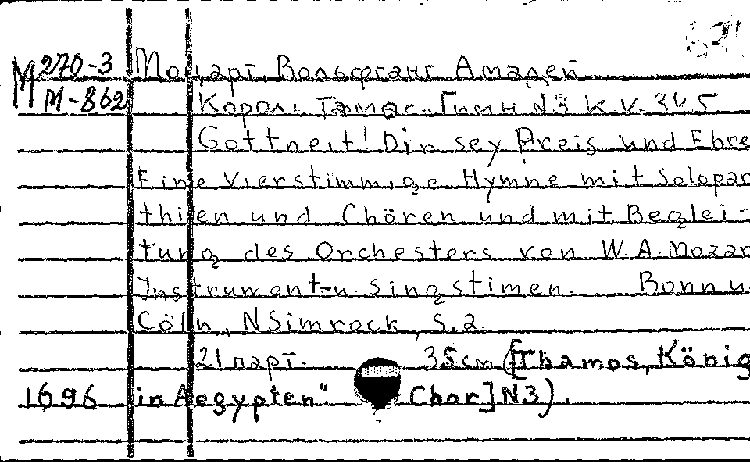 M 270-3 Моцарт, Вольфганг Амадей
М-862 Король Тамос. Гимн N3 K.V. 345
Gottheit! Dir sey Preis und Ehre
Eine vierstimmige Hymne mit Solopar
thien und Chören und mit Beglei-
tung des Orchesters von W.A. Mozar
Instrument-u. Singstimen. Bonn u
Cöln, N Simrock, s.a.
21 парт. 35см ([Thamos, König
1696 in Aegypten" Chor] N3).